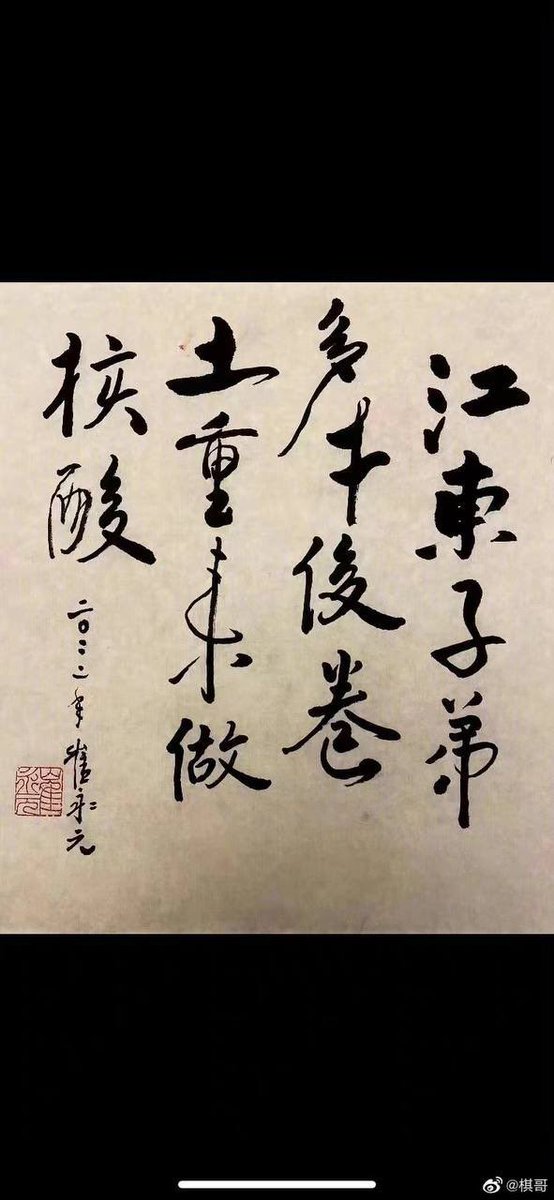 江東子弟
多才俊卷
土重来做
核酸
二〇二二年崔永元
@棋哥